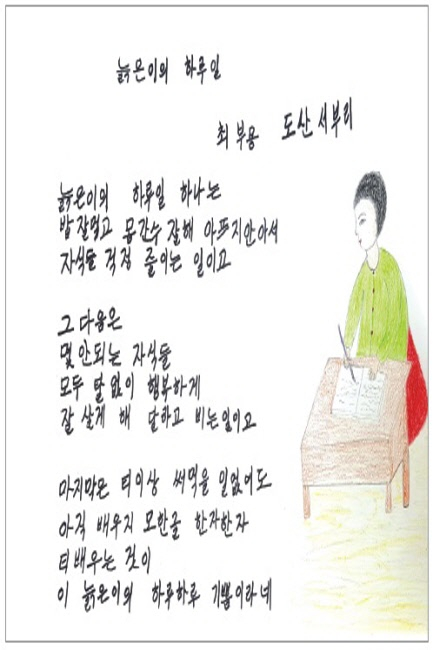 늙은이의 하루일
최부용 도산서부리
늙은이의 하루일 하나는
밥잘먹고 몸간수 잘해 아프지안아서
자식들 걱정 줄이는 일이고
그다음은
몇안되는 자식들
모두 탈없이 행복하게
잘 살게 해 달하고 비는일이고
마지막은 터이상 써먹을 일없어도
아직 배우지 모한글 한자한자
터배우는 것이
이 늙은이의 하루하루 기쁨이라네